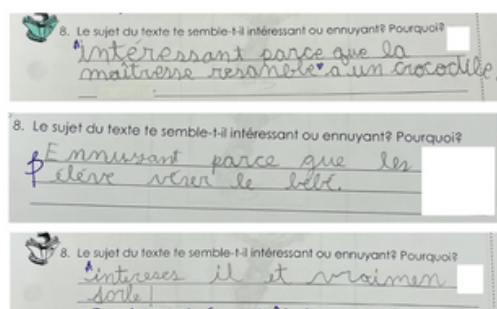 8. Le sujet du texte te semble-t-il intéressant ou ennuyant? Pourquoi?
intéressant parce que la
maîtresse resanble a un crocodile
8. Le sujet du texte te semble-t-il intéressant ou ennuyant? Pourquoi?
Ennuyant parce que les
élève le bébé.
8. Le sujet du texte te semble-t-il intéressant ou ennuyant? Pourquoi?
intereses il et vraimen